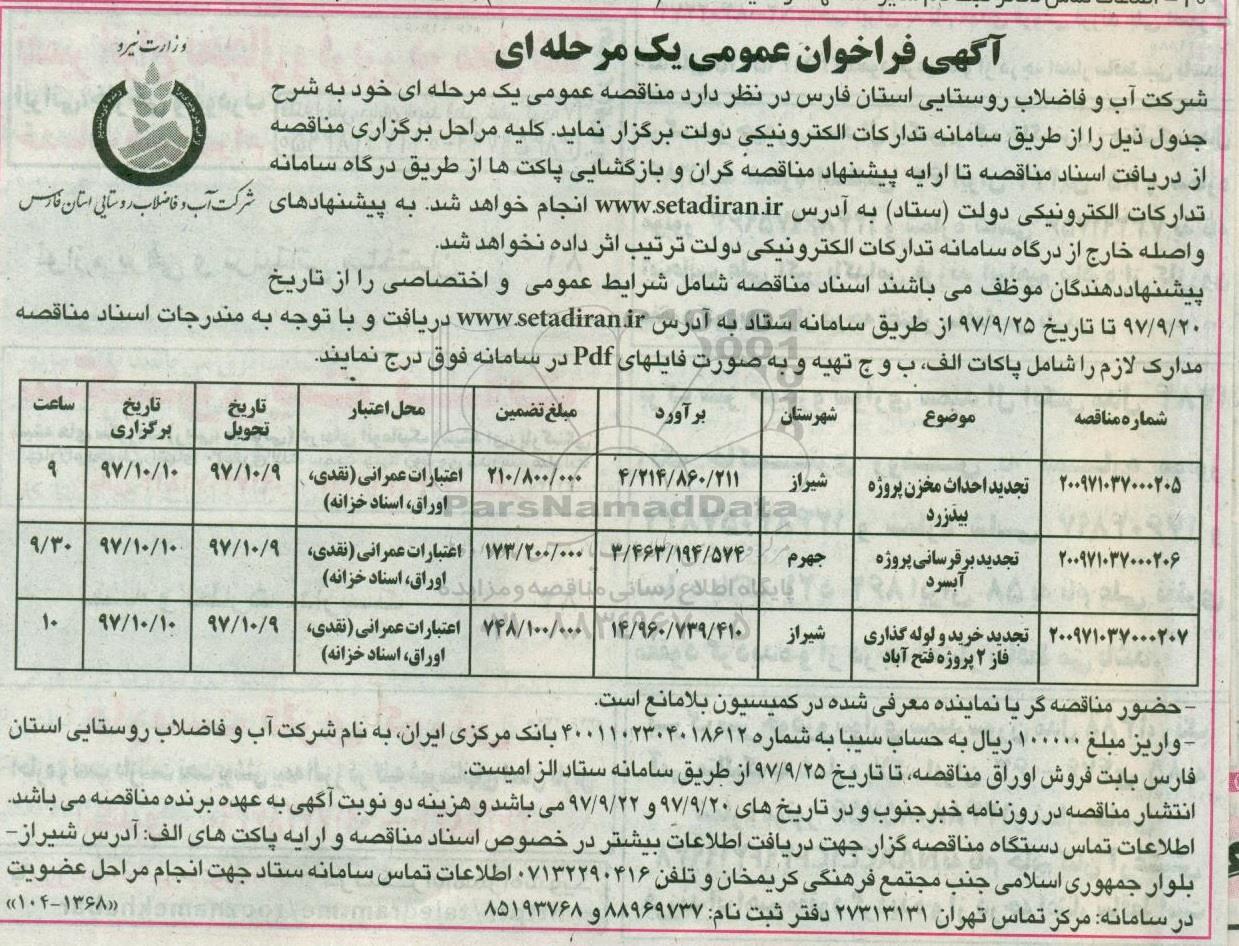 آگهی فراخوان عمومی یک مرحله ای
وزارت نیرو
شرکت آب و فاضلاب روستایی استان فارس
شرکت آب و فاضلاب روستایی استان فارس در نظر دارد مناقصه عمومی یک مرحله ای خود به شرح
جدول ذیل را از طریق سامانه تدارکات الکترونیکی دولت برگزار نماید. کلیه مراحل برگزاری مناقصه
از دریافت اسناد مناقصه تا ارایه پیشنهاد مناقصه گران و بازگشایی پاکت ها از طریق درگاه سامانه
تدارکات الکترونیکی دولت (ستاد) به آدرس www.setadiran.ir انجام خواهد شد. به پیشنهادهای
واصله خارج از درگاه سامانه تدارکات الکترونیکی دولت ترتیب اثر داده نخواهد شد.
پیشنهاددهندگان موظف می باشند اسناد مناقصه شامل شرایط عمومی و اختصاصی را از تاریخ
۹۷/۹/۲۰ تا تاریخ ۹۷/۹/۲۵ از طریق سامانه ستاد به آدرس www.setadiran.ir دریافت و با توجه به مندرجات اسناد مناقصه
مدارک لازم را شامل پاکات الف، ب و ج تهیه و به صورت فایلهای Pdf در سامانه فوق درج نمایند.
شماره مناقصه موضوع شهرستان برآورد مبلغ تضمین محل اعتبار تاریخ تحویل تاریخ برگزاری ساعت
۲۰۰۹۷۱۰۳۷۰۰۰۲۰۵ تجدید احداث مخزن پروژه بیدزرد شیراز ۴/۲۱۴/۸۶۰/۲۱۱ ۲۱۰/۸۰۰/۰۰۰ اعتبارات عمرانی (نقدی، اوراق، اسناد خزانه) ۹۷/۱۰/۹ ۹۷/۱۰/۱۰ ۹
۲۰۰۹۷۱۰۳۷۰۰۰۲۰۶ تجدید برقرسانی پروژه آبسرد جهرم ۳/۴۶۳/۱۹۴/۵۷۴ ۱۷۳/۲۰۰/۰۰۰ اعتبارات عمرانی (نقدی، اوراق، اسناد خزانه) ۹۷/۱۰/۹ ۹۷/۱۰/۱۰ ۹/۳۰
۲۰۰۹۷۱۰۳۷۰۰۰۲۰۷ تجدید خرید و لوله گذاری فاز ۲ پروژه فتح آباد شیراز ۱۴/۹۶۰/۷۳۹/۴۱۰ ۷۴۸/۱۰۰/۰۰۰ اعتبارات عمرانی (نقدی، اوراق، اسناد خزانه) ۹۷/۱۰/۹ ۹۷/۱۰/۱۰ ۱۰
ParsNamadData
پایگاه اطلاع رسانی مناقصه و مزایده
- حضور مناقصه گر یا نماینده معرفی شده در کمیسیون بلامانع است.
- واریز مبلغ ۱۰۰۰۰۰۰ ریال به حساب سیبا به شماره ۴۰۰۱۱۰۲۳۰۴۰۱۸۶۱۲ بانک مرکزی ایران، به نام شرکت آب و فاضلاب روستایی استان
فارس بابت فروش اوراق مناقصه، تا تاریخ ۹۷/۹/۲۵ از طریق سامانه ستاد الزامیست.
انتشار مناقصه در روزنامه خبرجنوب و در تاریخ های ۹۷/۹/۲۰ و ۹۷/۹/۲۲ می باشد و هزینه دو نوبت آگهی به عهده برنده مناقصه می باشد.
اطلاعات تماس دستگاه مناقصه گزار جهت دریافت اطلاعات بیشتر در خصوص اسناد مناقصه و ارایه پاکت های الف: آدرس شیراز-
بلوار جمهوری اسلامی جنب مجتمع فرهنگی کریمخان و تلفن ۰۷۱۳۲۲۹۰۴۱۶ اطلاعات تماس سامانه ستاد جهت انجام مراحل عضویت
در سامانه: مرکز تماس تهران ۲۷۳۱۳۱۳۱ دفتر ثبت نام: ۸۸۹۶۹۷۳۷ و ۸۵۱۹۳۷۶۸
«۱۰۴-۱۳۶۸»